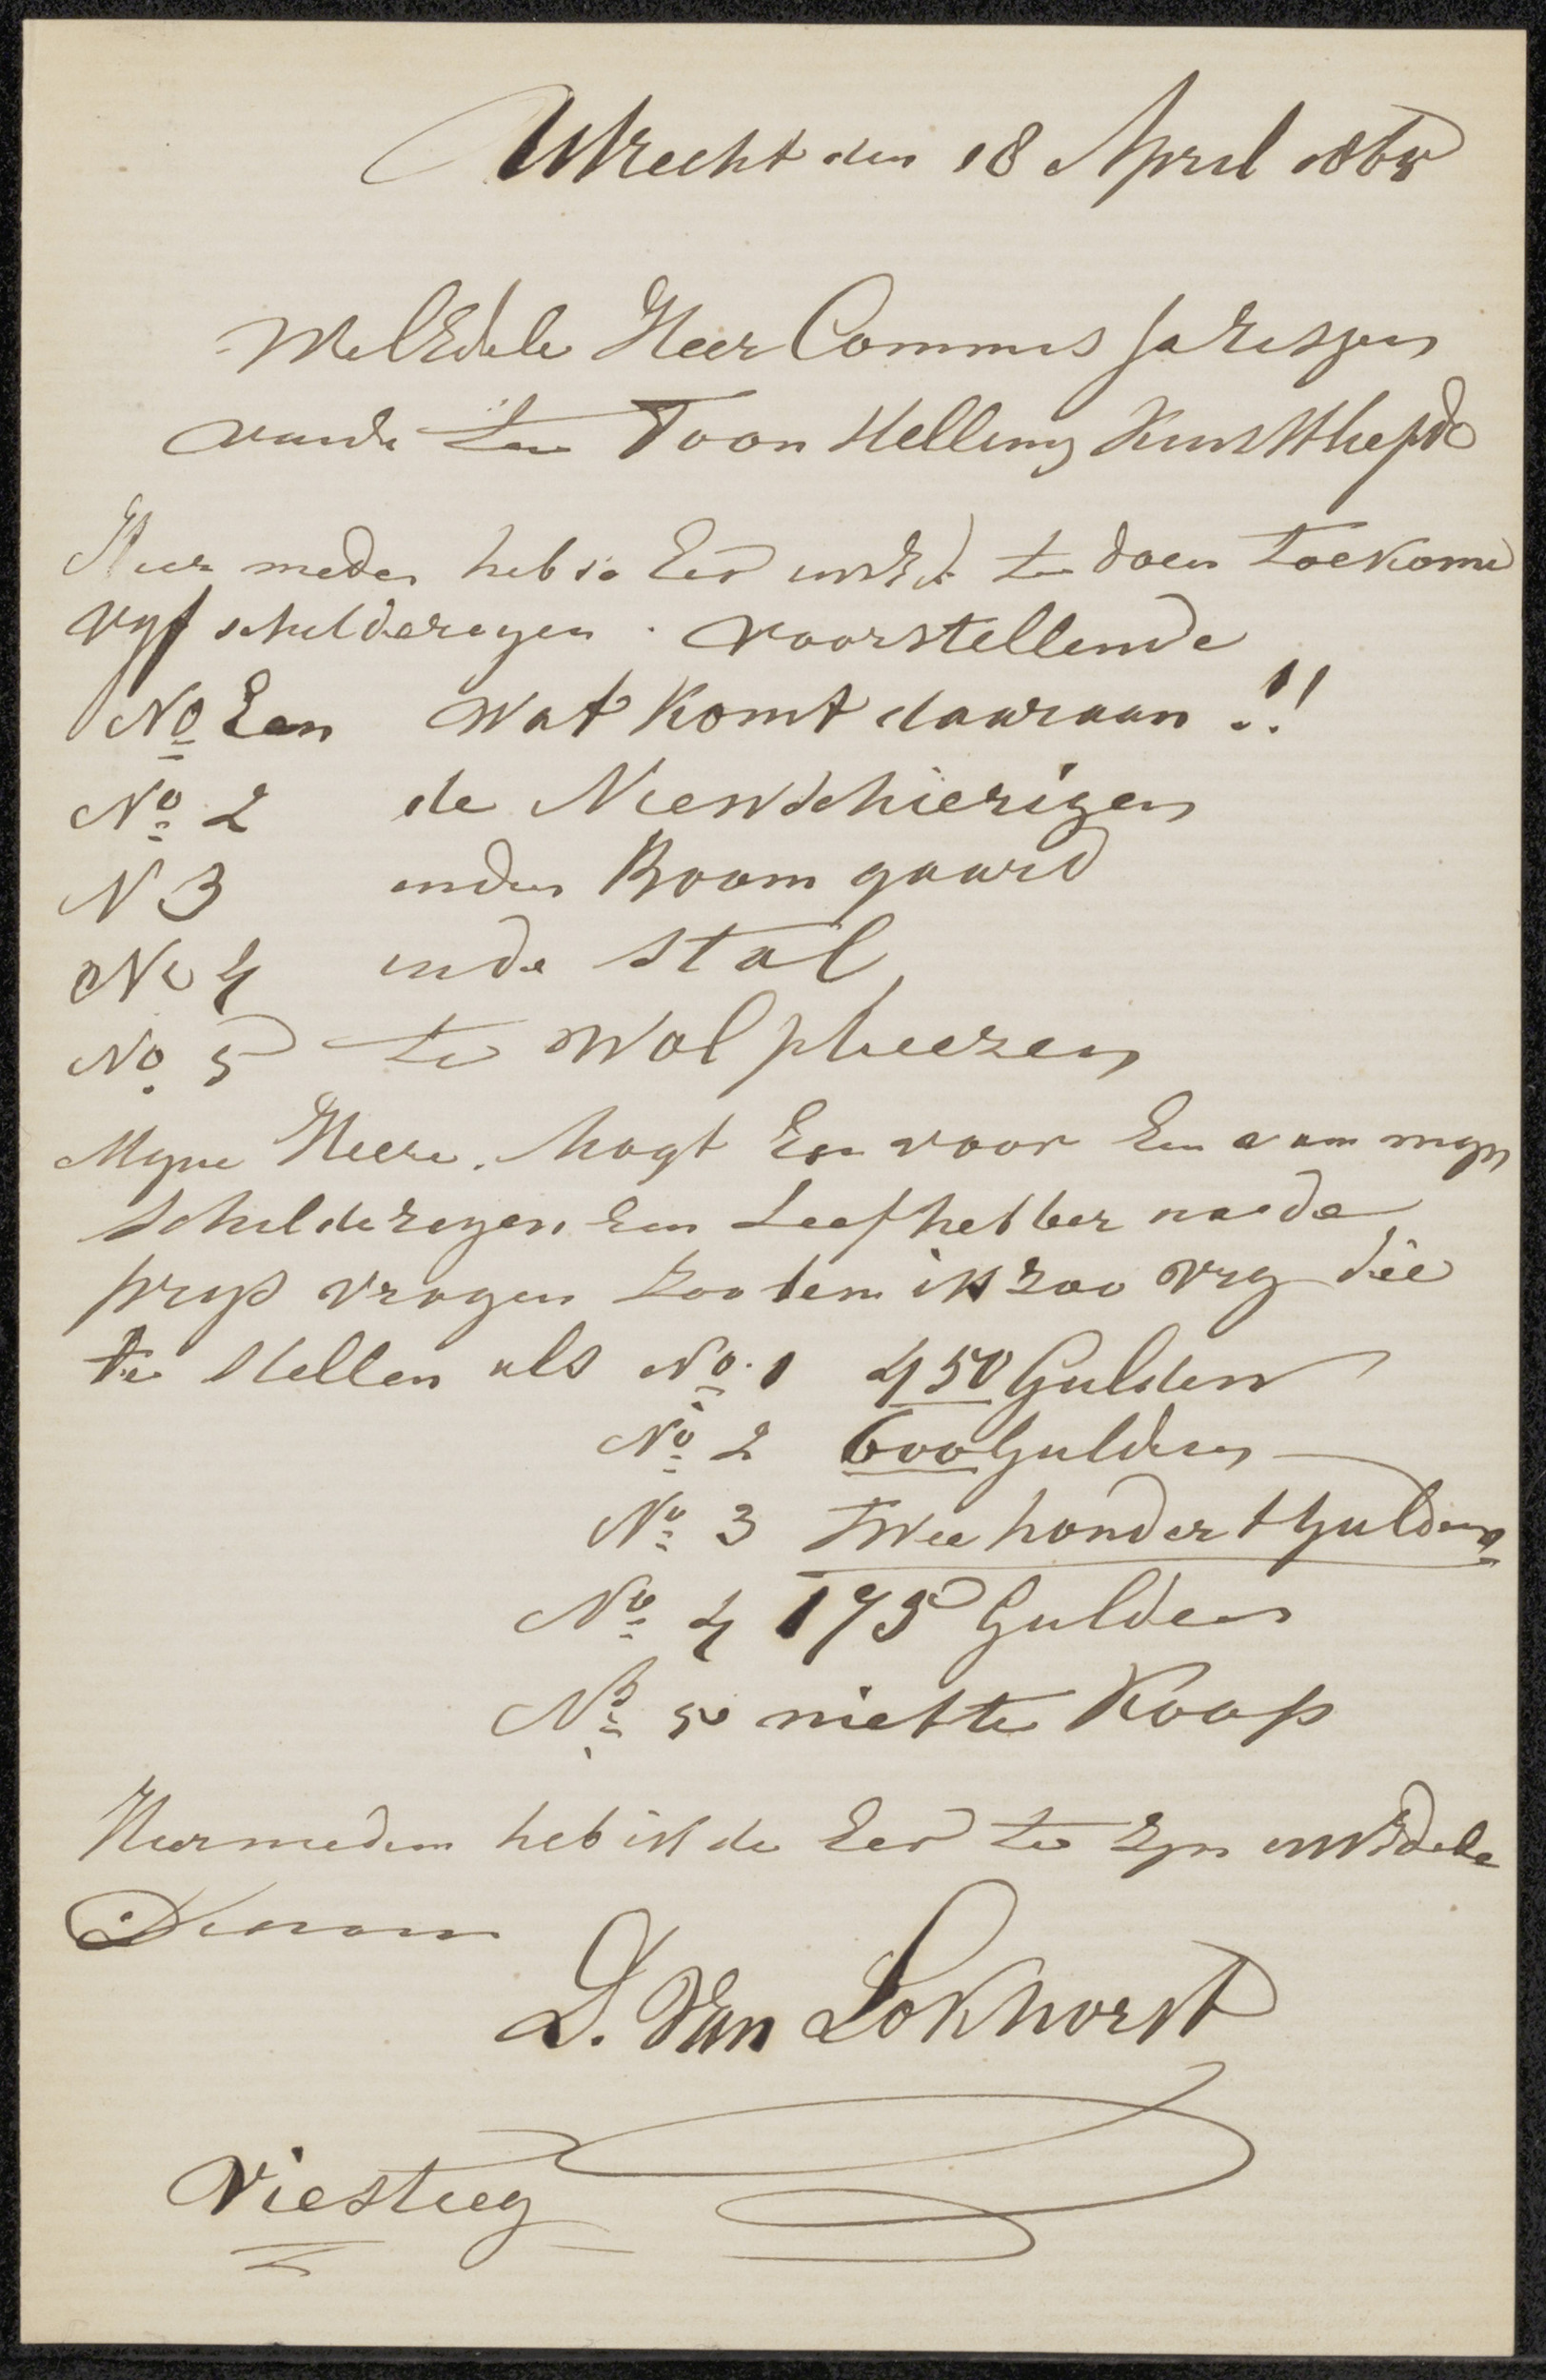 Utrecht den 18 April 186
WelEdele Heer Commissarissen
vande ten Toon Stelling Kunstliefde
Hier meden heb ik Eer uwEd te doen toekome
vyf schildereyen . voorstellende
No Een Wat Komt daaraan !!
No 2 de Nieuwschierigen
N 3 inden Boomgaard
No 4 inde Stal
No 5 te Wolpheezen
Myne Heere. Mogt Er voor Een van myn
schildereyen Een Leefhebber naede
prys vragen zoo ben ik zoo vry die
te Stellen als No. 1 450 Gulden
No 2 600 Gulden
No 3 Twee hondert Gulden
No 4 175 Gulden
No 5 niet te Koop
Hiermeden heb ik de Eer te zyn uwEdele
Dienaar
D. Van Lokhorst
Viesteeg